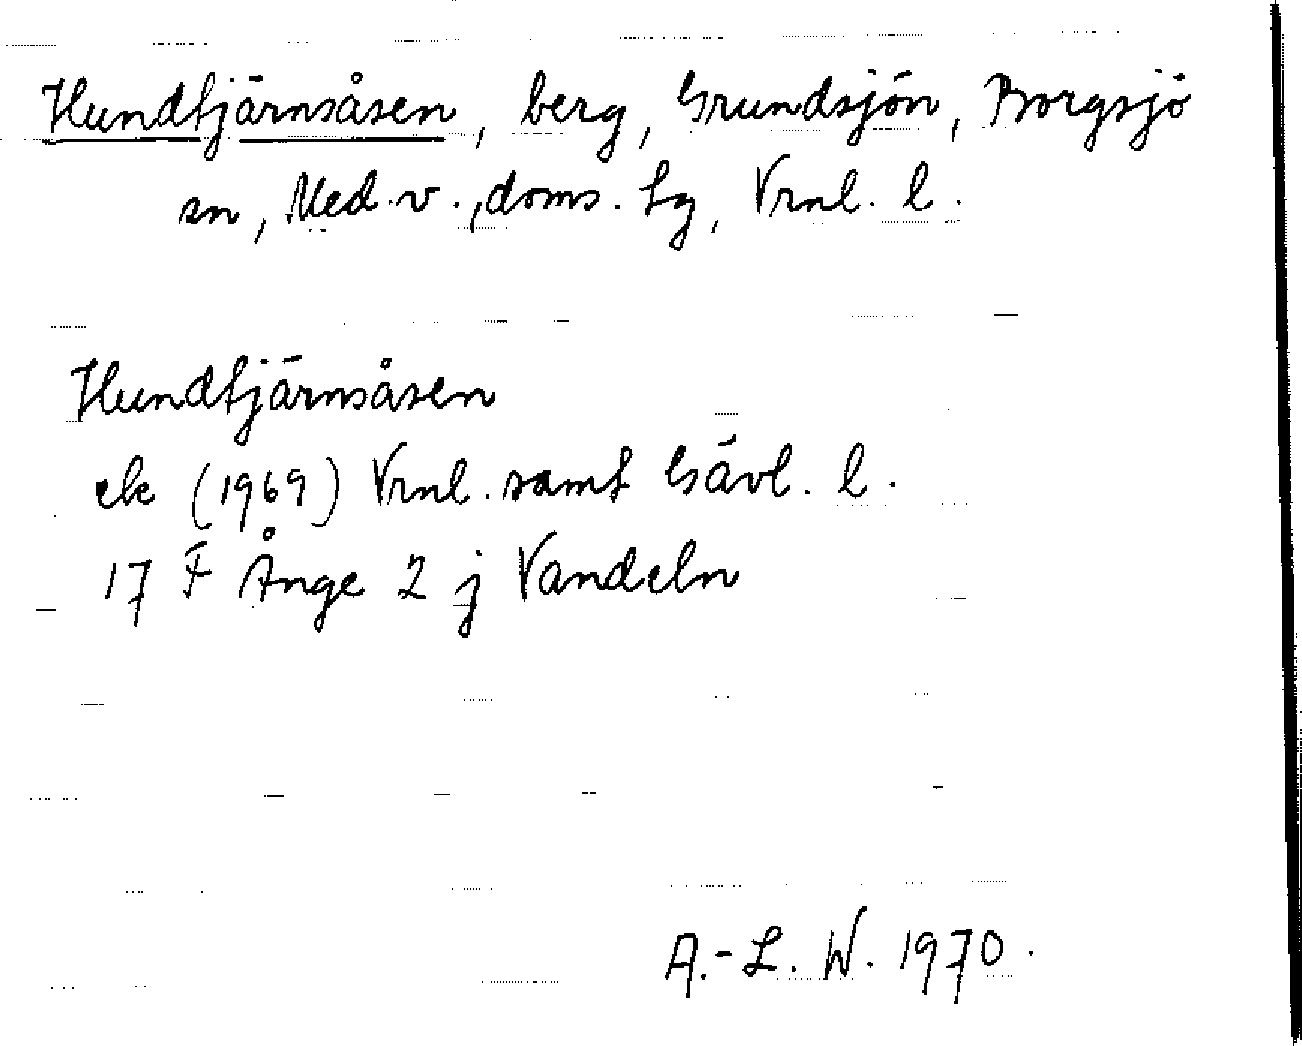 Hundtjärnsåsen, berg, Grundsjön, Borgsjö
sn, Med. v., doms. Lg, Vrnl. l.
Hundtjärnsåsen
ek (1969) Vrnl. samt Gävl. l.
17 F Ånge 2 j Vandeln
A.-L. W. 1970.